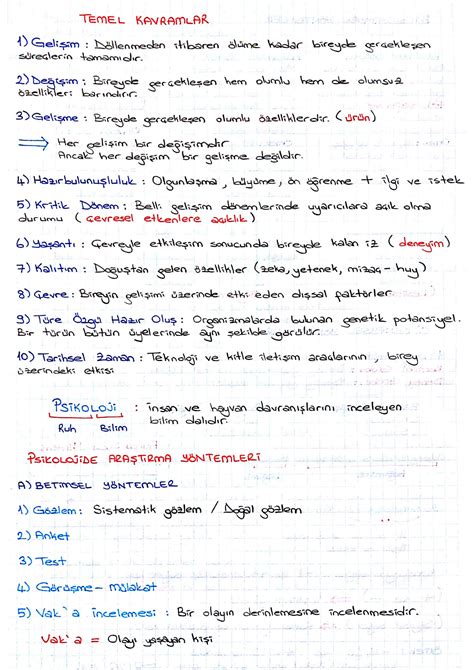 TEMEL KAVRAMLAR
1) Gelişim : Döllenmeden itibaren ölüme kadar bireyde gerçekleşen
süreçlerin tamamıdır.
2) Değişim : Bireyde gerçekleşen hem olumlu hem de olumsuz
özellikleri barındırır.
3) Gelişme : Bireyde gerçekleşen olumlu özelliklerdir. (ürün)
Her gelişim bir değişimdir
Ancak her değişim bir gelişme değildir.
4) Hazırbulunuşluluk : Olgunlaşma, büyüme, ön öğrenme + ilgi ve istek
5) Kritik Dönem : Belli gelişim dönemlerinde uyarıcılara açık olma
durumu ( çevresel etkenlere açıklık )
6) Yaşantı : Çevreyle etkileşim sonucunda bireyde kalan iz ( deneyim )
7) Kalıtım : Doğuştan gelen özellikler (zeka, yetenek, mizaç - huy)
8) Çevre : Bireyin gelişimi üzerinde etki eden dışsal faktörler.
9) Türe Özgü Hazır Oluş : Organizmalarda bulunan genetik potansiyel.
Bir türün bütün üyelerinde aynı şekilde görülür.
10) Tarihsel Zaman : Teknoloji ve kitle iletişim araçlarının , birey
üzerindeki etkisi
PSİKOLOJİ : insan ve hayvan davranışlarını inceleyen
bilim dalıdır.
Ruh Bilim
PSİKOLOJİDE ARAŞTIRMA YÖNTEMLERİ
A) BETİMSEL YÖNTEMLER
1) Gözlem : Sistematik gözlem / Doğal gözlem
2) Anket
3) Test
4) Görüşme - Mülakat
5) Vak'a incelemesi : Bir olayın derinlemesine incelenmesidir.
Vak'a = Olayı yaşayan kişi